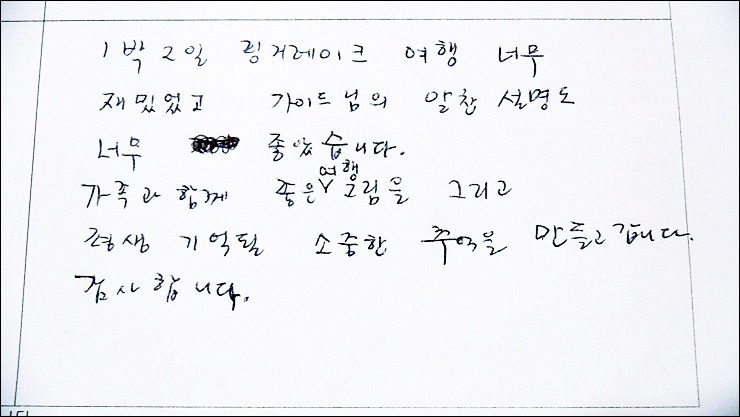 1박 2일 핑거레이크 여행 너무
재밌었고 가이드님의 알찬 설명도
너무 좋았습니다.
가족과 함께 좋은 여행 그림을 그리고
평생 기억될 소중한 추억을 만들고 갑니다.
감사합니다.